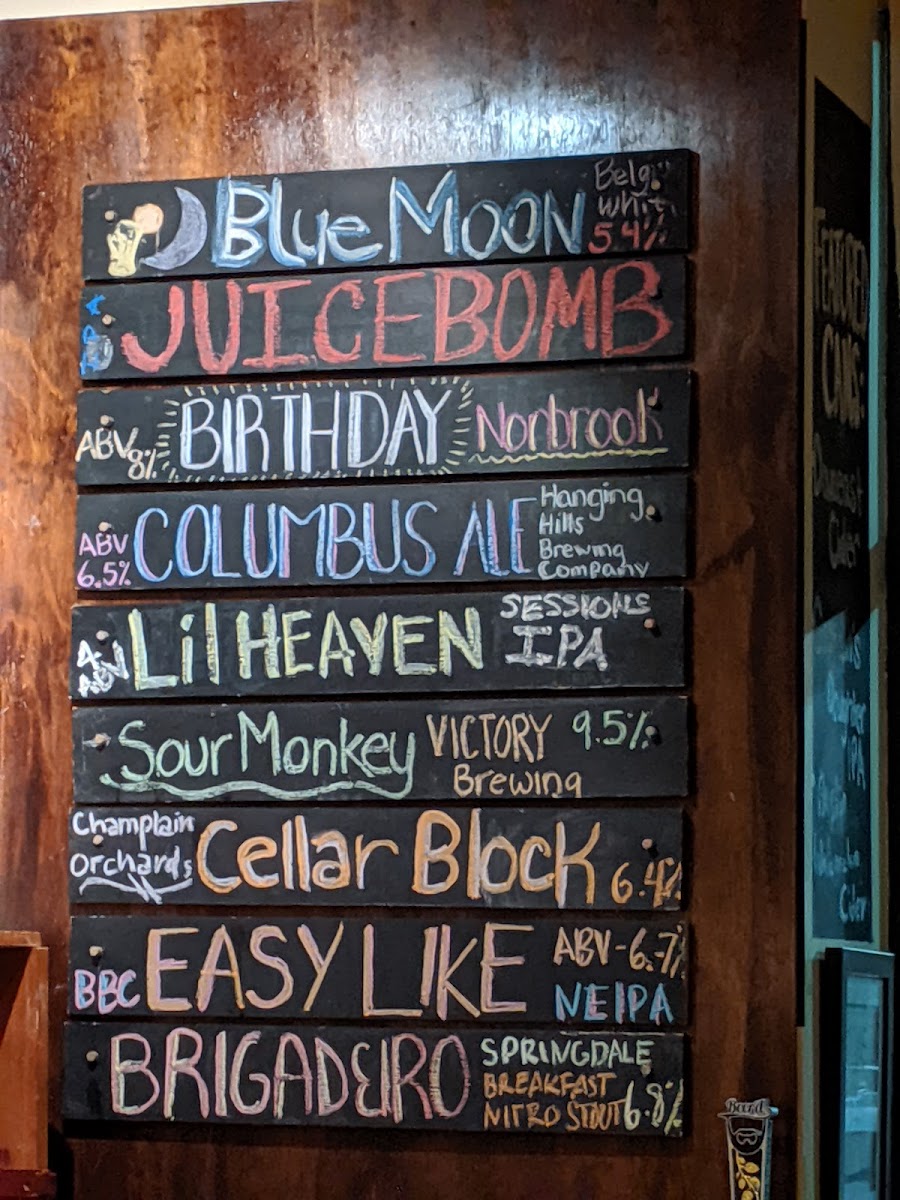 Blue Moon
Belg
Whit
5.4%
IPA
JUICEBOMB
ABV
8%
BIRTHDAY
Norbrook
ABV
6.5%
COLUMBUS ALE
Hanging
Hills
Brewing
Company
4.
ABV
Lil HEAVEN
SESSIONS
IPA
Sour Monkey
VICTORY
Brewing
9.5%
Champlain
Orchards
Cellar Block
6.4%
BBC
EASY LIKE
ABV-6.7%
NEIPA
BRIGADEIRO
SPRINGDALE
BREAKFAST
NITRO STOUT
6.8%
FEATURED
CANS:
Downeast
Cider
IPA
Cider